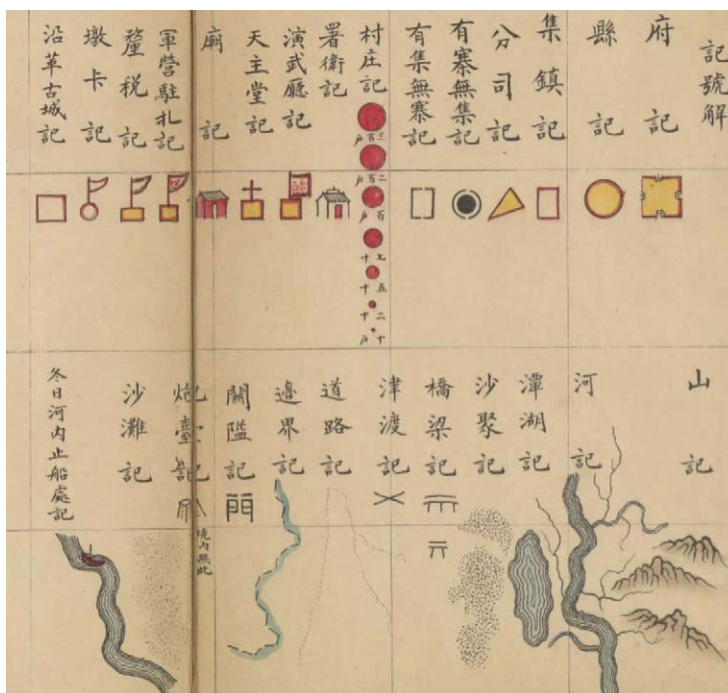 記號解
府記
縣記
集鎮記
分司記
有寨無集記
有集無寨記
村庄記
三百戶
二百戶
百戶
七十
五十
二十
十戶
署衙記
演武廳記
天主堂記
廟記
軍營駐札記
釐稅記
墩卡記
沿革古城記
山記
河記
潭湖記
沙聚記
橋梁記
津渡記
道路記
邊界記
關隘記
境內無此
炮臺記
沙灘記
冬日河內止船處記